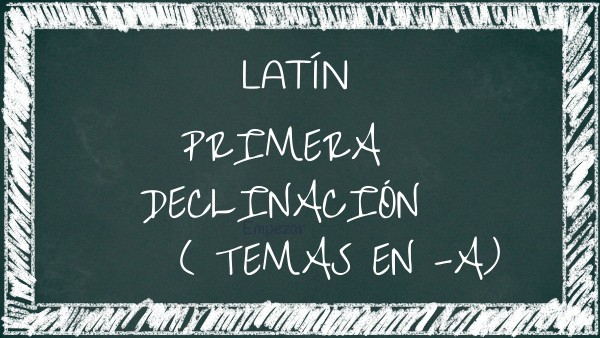 LATÍN
PRIMERA
DECLINACIÓN
Empezar
( TEMAS EN -A)